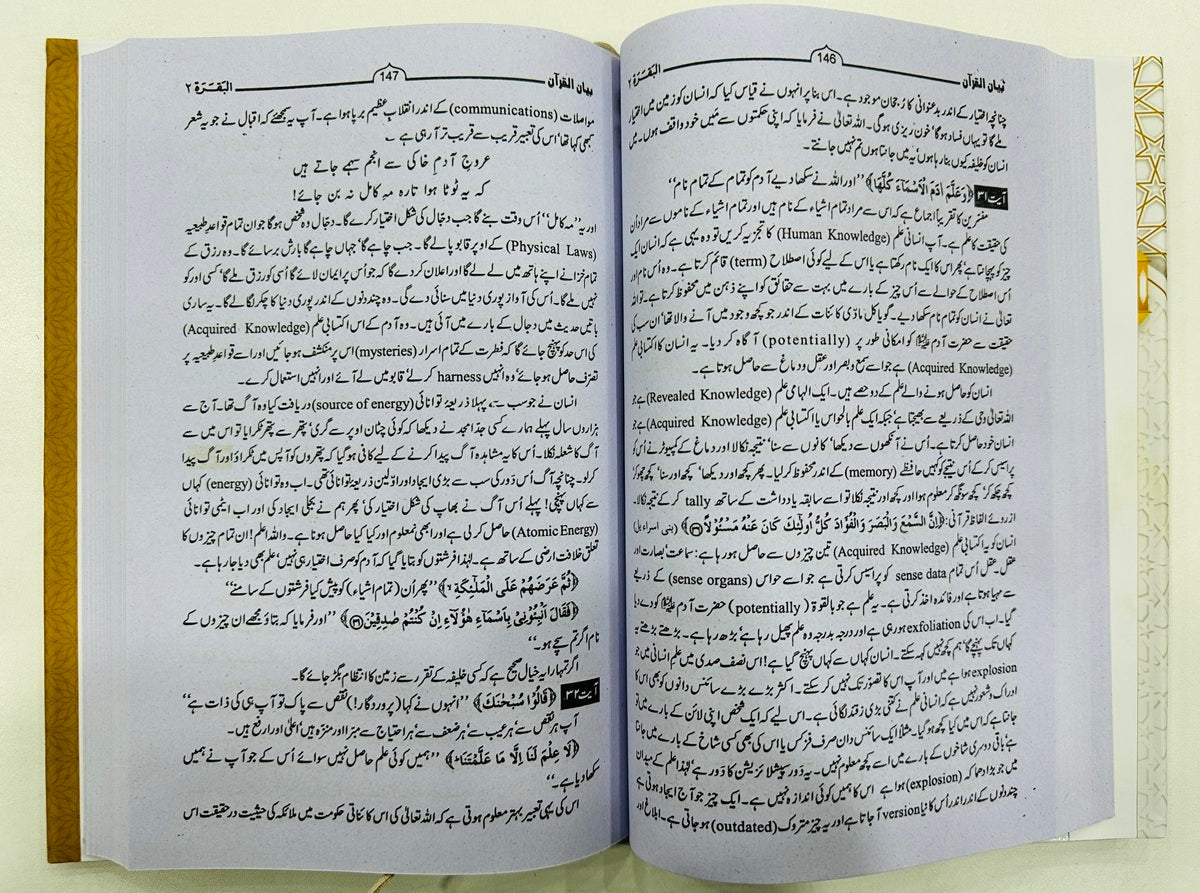 بیان القرآن 146 البَقَرَة ۲
چنانچہ اختیار کے اندر بدعنوانی کا رُجحان موجود ہے۔ اس بنا پر انہوں نے قیاس کیا کہ انسان کو زمین میں اختیار
ملے گا تو یہاں فساد ہوگا' خون ریزی ہوگی۔ اللہ تعالیٰ نے فرمایا کہ اپنی حکمتوں سے مَیں خود واقف ہوں۔ میں
انسان کو خلیفہ کیوں بنا رہا ہوں' یہ میں جانتا ہوں تم نہیں جانتے۔
آیت ۳۱ ﴿وَعَلَّمَ اٰدَمَ الْاَسْمَآءَ كُلَّهَا﴾ ''اور اللہ نے سکھا دیے آدم کو تمام کے تمام نام''
مفسرین کا تقریباً اجماع ہے کہ اس سے مراد تمام اشیاء کے نام ہیں اور تمام اشیاء کے ناموں سے مراد اِن
کی حقیقت کا علم ہے۔ آپ انسانی علم (Human Knowledge) کا تجزیہ کریں تو وہ یہی ہے کہ انسان ایک
چیز کو پہچانتا ہے' پھر اس کا ایک نام رکھتا ہے یا اس کے لیے کوئی اصطلاح (term) قائم کرتا ہے۔ وہ اُس نام اور
اُس اصطلاح کے حوالے سے اُس چیز کے بارے میں بہت سے حقائق کو اپنے ذہن میں محفوظ کرتا ہے۔ تو اللہ
تعالیٰ نے انسان کو تمام نام سکھا دیے۔ گویا کل مادّی کائنات کے اندر جو کچھ وجود میں آنے والا تھا' ان سب کی
حقیقت سے حضرت آدم علیہ السلام کو امکانی طور پر (potentially) آگاہ کر دیا۔ یہ انسان کا اکتسابی علم
(Acquired Knowledge) ہے جو اسے سمع و بصر اور عقل و دماغ سے حاصل ہوتا ہے۔
انسان کو حاصل ہونے والے علم کے دو حصے ہیں۔ ایک الہامی علم (Revealed Knowledge) ہے جو
اللہ تعالیٰ وحی کے ذریعے سے بھیجتا ہے' جبکہ ایک علم بالحواس یا اکتسابی علم (Acquired Knowledge) ہے جو
انسان خود حاصل کرتا ہے۔ اُس نے آنکھوں سے دیکھا' کانوں سے سنا' نتیجہ نکالا اور دماغ کے کمپیوٹر نے اُس کو
پراسیس کر کے اُس نتیجے کو کہیں حافظے (memory) کے اندر محفوظ کر لیا۔ پھر کچھ اور دیکھا' کچھ اور سنا' کچھ چھو کر'
کچھ چکھ کر' کچھ سونگھ کر معلوم ہوا اور کچھ اور نتیجہ نکلا تو اسے سابقہ یادداشت کے ساتھ tally کر کے نتیجہ نکالا۔
ازروئے الفاظِ قرآنی: ﴿اِنَّ السَّمْعَ وَالْبَصَرَ وَالْفُؤَادَ كُلُّ اُولٰٓئِكَ كَانَ عَنْهُ مَسْئُوْلًا ۝۳۶﴾ (بنی اسراءیل)
انسان کو یہ اکتسابی علم (Acquired Knowledge) تین چیزوں سے حاصل ہو رہا ہے: سماعت' بصارت اور
عقل۔ عقل اُس تمام sense data کو پراسیس کرتی ہے جو اسے حواس (sense organs) کے ذریعے
سے مہیا ہوتا ہے اور فائدہ اخذ کرتی ہے۔ یہ علم ہے جو بالقوۃ (potentially) حضرت آدم علیہ السلام کو دے دیا
گیا۔ اب اس کی exfoliation ہو رہی ہے اور درجہ بدرجہ وہ علم پھیل رہا ہے' بڑھ رہا ہے۔ بڑھتے بڑھتے یہ
کہاں تک پہنچے گا' ہم کچھ نہیں کہہ سکتے۔ انسان کہاں سے کہاں پہنچ گیا ہے! اس نصف صدی میں علمِ انسانی میں جو
explosion ہوا ہے میں اور آپ اس کا تصور تک نہیں کر سکتے۔ اکثر بڑے بڑے سائنس دانوں کو بھی اس کا
ادراک و شعور نہیں ہے کہ انسانی علم نے کتنی بڑی زقند لگائی ہے۔ اس لیے کہ ایک شخص اپنی لائن کے بارے میں تو
جانتا ہے کہ اس میں کیا کچھ ہو گیا۔ مثلاً ایک سائنس دان صرف فزکس یا اس کی بھی کسی شاخ کے بارے میں جانتا
ہے' باقی دوسری شاخوں کے بارے میں اسے کچھ معلوم نہیں۔ یہ دَور سپیشلائزیشن کا دَور ہے' لہٰذا علم کے میدان
میں جو بڑا دھماکہ (explosion) ہوا ہے اس کا ہمیں کوئی اندازہ نہیں ہے۔ ایک چیز جو آج ایجاد ہوتی ہے
چند دنوں کے اندر اندر اُس کا نیا version آ جاتا ہے اور یہ چیز متروک (outdated) ہو جاتی ہے۔ ابلاغ اور
بیان القرآن 147 البَقَرَة ۲
مواصلات (communications) کے اندر انقلابِ عظیم برپا ہوا ہے۔ آپ یہ سمجھئے کہ اقبال نے جو یہ شعر
کبھی کہا تھا' اس کی تعبیر قریب سے قریب تر آ رہی ہے۔
عروجِ آدمِ خاکی سے انجم سہمے جاتے ہیں
کہ یہ ٹوٹا ہوا تارہ مہِ کامل نہ بن جائے!
اور یہ ''مہِ کامل'' اُس وقت بنے گا جب دجّال کی شکل اختیار کرے گا۔ دجّال وہ شخص ہوگا جو ان تمام قواعد طبیعیہ
(Physical Laws) کے اوپر قابو پا لے گا۔ جب چاہے گا' جہاں چاہے گا بارش برسائے گا۔ وہ رزق کے
تمام خزانے اپنے ہاتھ میں لے لے گا اور اعلان کر دے گا کہ جو اُس پر ایمان لائے گا اُسی کو رزق ملے گا' کسی اور کو
نہیں ملے گا۔ اُس کی آواز پوری دنیا میں سنائی دے گی۔ وہ چند دنوں کے اندر پوری دنیا کا چکر لگا لے گا۔ یہ ساری
باتیں حدیث میں دجال کے بارے میں آئی ہیں۔ وہ آدم کے اس اکتسابی علم (Acquired Knowledge)
کی اس حد کو پہنچ جائے گا کہ فطرت کے تمام اسرار (mysteries) اس پر منکشف ہو جائیں اور اسے قواعدِ طبیعیہ پر
تصرف حاصل ہو جائے' وہ انہیں harness کر لے' قابو میں لے آئے اور انہیں استعمال کرے۔
انسان نے جو سب سے پہلا ذریعۂ توانائی (source of energy) دریافت کیا وہ آگ تھا۔ آج سے
ہزاروں سال پہلے ہمارے کسی جدّ امجد نے دیکھا کہ کوئی چٹان اوپر سے گری' پتھر سے پتھر ٹکرایا تو اس میں سے
آگ کا شعلہ نکلا۔ اُس کا یہ مشاہدہ آگ پیدا کرنے کے لیے کافی ہو گیا کہ پتھروں کو آپس میں ٹکراؤ اور آگ پیدا
کر لو۔ چنانچہ آگ اُس دَور کی سب سے بڑی ایجاد اور اوّلین ذریعۂ توانائی تھی۔ اب وہ توانائی (energy) کہاں
سے کہاں پہنچی! پہلے اُس آگ نے بھاپ کی شکل اختیار کی' پھر ہم نے بجلی ایجاد کی اور اب ایٹمی توانائی
(Atomic Energy) حاصل کر لی ہے اور ابھی نمعلوم اور کیا کیا حاصل ہونا ہے۔ واللہ اعلم! ان تمام چیزوں کا
تعلق خلافتِ ارضی کے ساتھ ہے۔ لہٰذا فرشتوں کو بتایا گیا کہ آدم کو صرف اختیار ہی نہیں' علم بھی دیا جا رہا ہے۔
﴿ثُمَّ عَرَضَهُمْ عَلَى الْمَلٰٓئِكَةِ﴾ ''پھر اُن (تمام اشیاء) کو پیش کیا فرشتوں کے سامنے''
﴿فَقَالَ اَنْۢبِئُوْنِیْ بِاَسْمَآءِ هٰٓؤُلَآءِ اِنْ كُنْتُمْ صٰدِقِیْنَ ۝۳۱﴾ ''اور فرمایا کہ بتاؤ مجھے ان چیزوں کے
نام اگر تم سچے ہو۔''
اگر تمہارا یہ خیال صحیح ہے کہ کسی خلیفہ کے تقرر سے زمین کا انتظام بگڑ جائے گا۔
آیت ۳۲ ﴿قَالُوْا سُبْحٰنَكَ﴾ ''انہوں نے کہا (پروردگار!) نقص سے پاک تو آپ ہی کی ذات ہے''
آپ ہر نقص سے' ہر عیب سے' ہر ضعف سے' ہر احتیاج سے مبرّا اور منزّہ ہیں' اعلیٰ اور ارفع ہیں۔
﴿لَا عِلْمَ لَنَآ اِلَّا مَا عَلَّمْتَنَا﴾ ''ہمیں کوئی علم حاصل نہیں سوائے اُس کے جو آپ نے ہمیں
سکھا دیا ہے۔''
اس کی یہی تعبیر بہتر معلوم ہوتی ہے کہ اللہ تعالیٰ کی اس کائناتی حکومت میں ملائکہ کی حیثیت درحقیقت اس